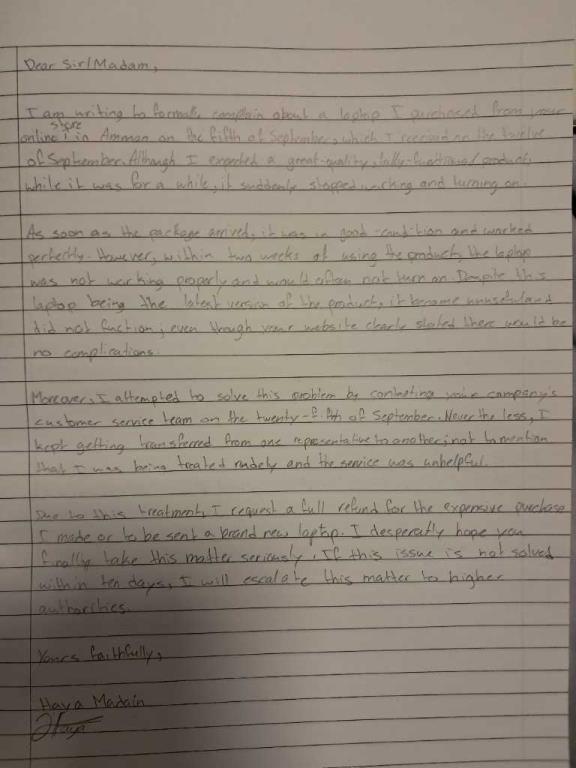 Dear Sir/Madam,
I am writing to formally complain about a laptop I purchased from your
online store in Amman on the fifth of September, which I received on the twelve
of September. Although I expected a great-quality, fully-functional product,
while it was for a while, it suddenly stopped working and turning on.
As soon as the package arrived, it was in good condition and worked
perfectly. However, within two weeks of using the product, the laptop
was not working properly and would often not turn on. Despite this
laptop being the latest version of the product, it became unuseful and
did not fuction; even though your website clearly stated there would be
no complications.
Moreover, I attempted to solve this problem by contacting your company's
customer service team on the twenty-fifth of September. Never the less, I
kept getting transferred from one representative to another; not to mention
that I was being treated rudely and the service was unhelpful.
Due to this treatment, I request a full refund for the expensive purchase
I made or to be sent a brand new laptop. I desperatly hope you
finally take this matter seriously. If this issue is not solved
within ten days, I will escalate this matter to higher
authorities.
Yours faithfully,
Haya Madain
Haya